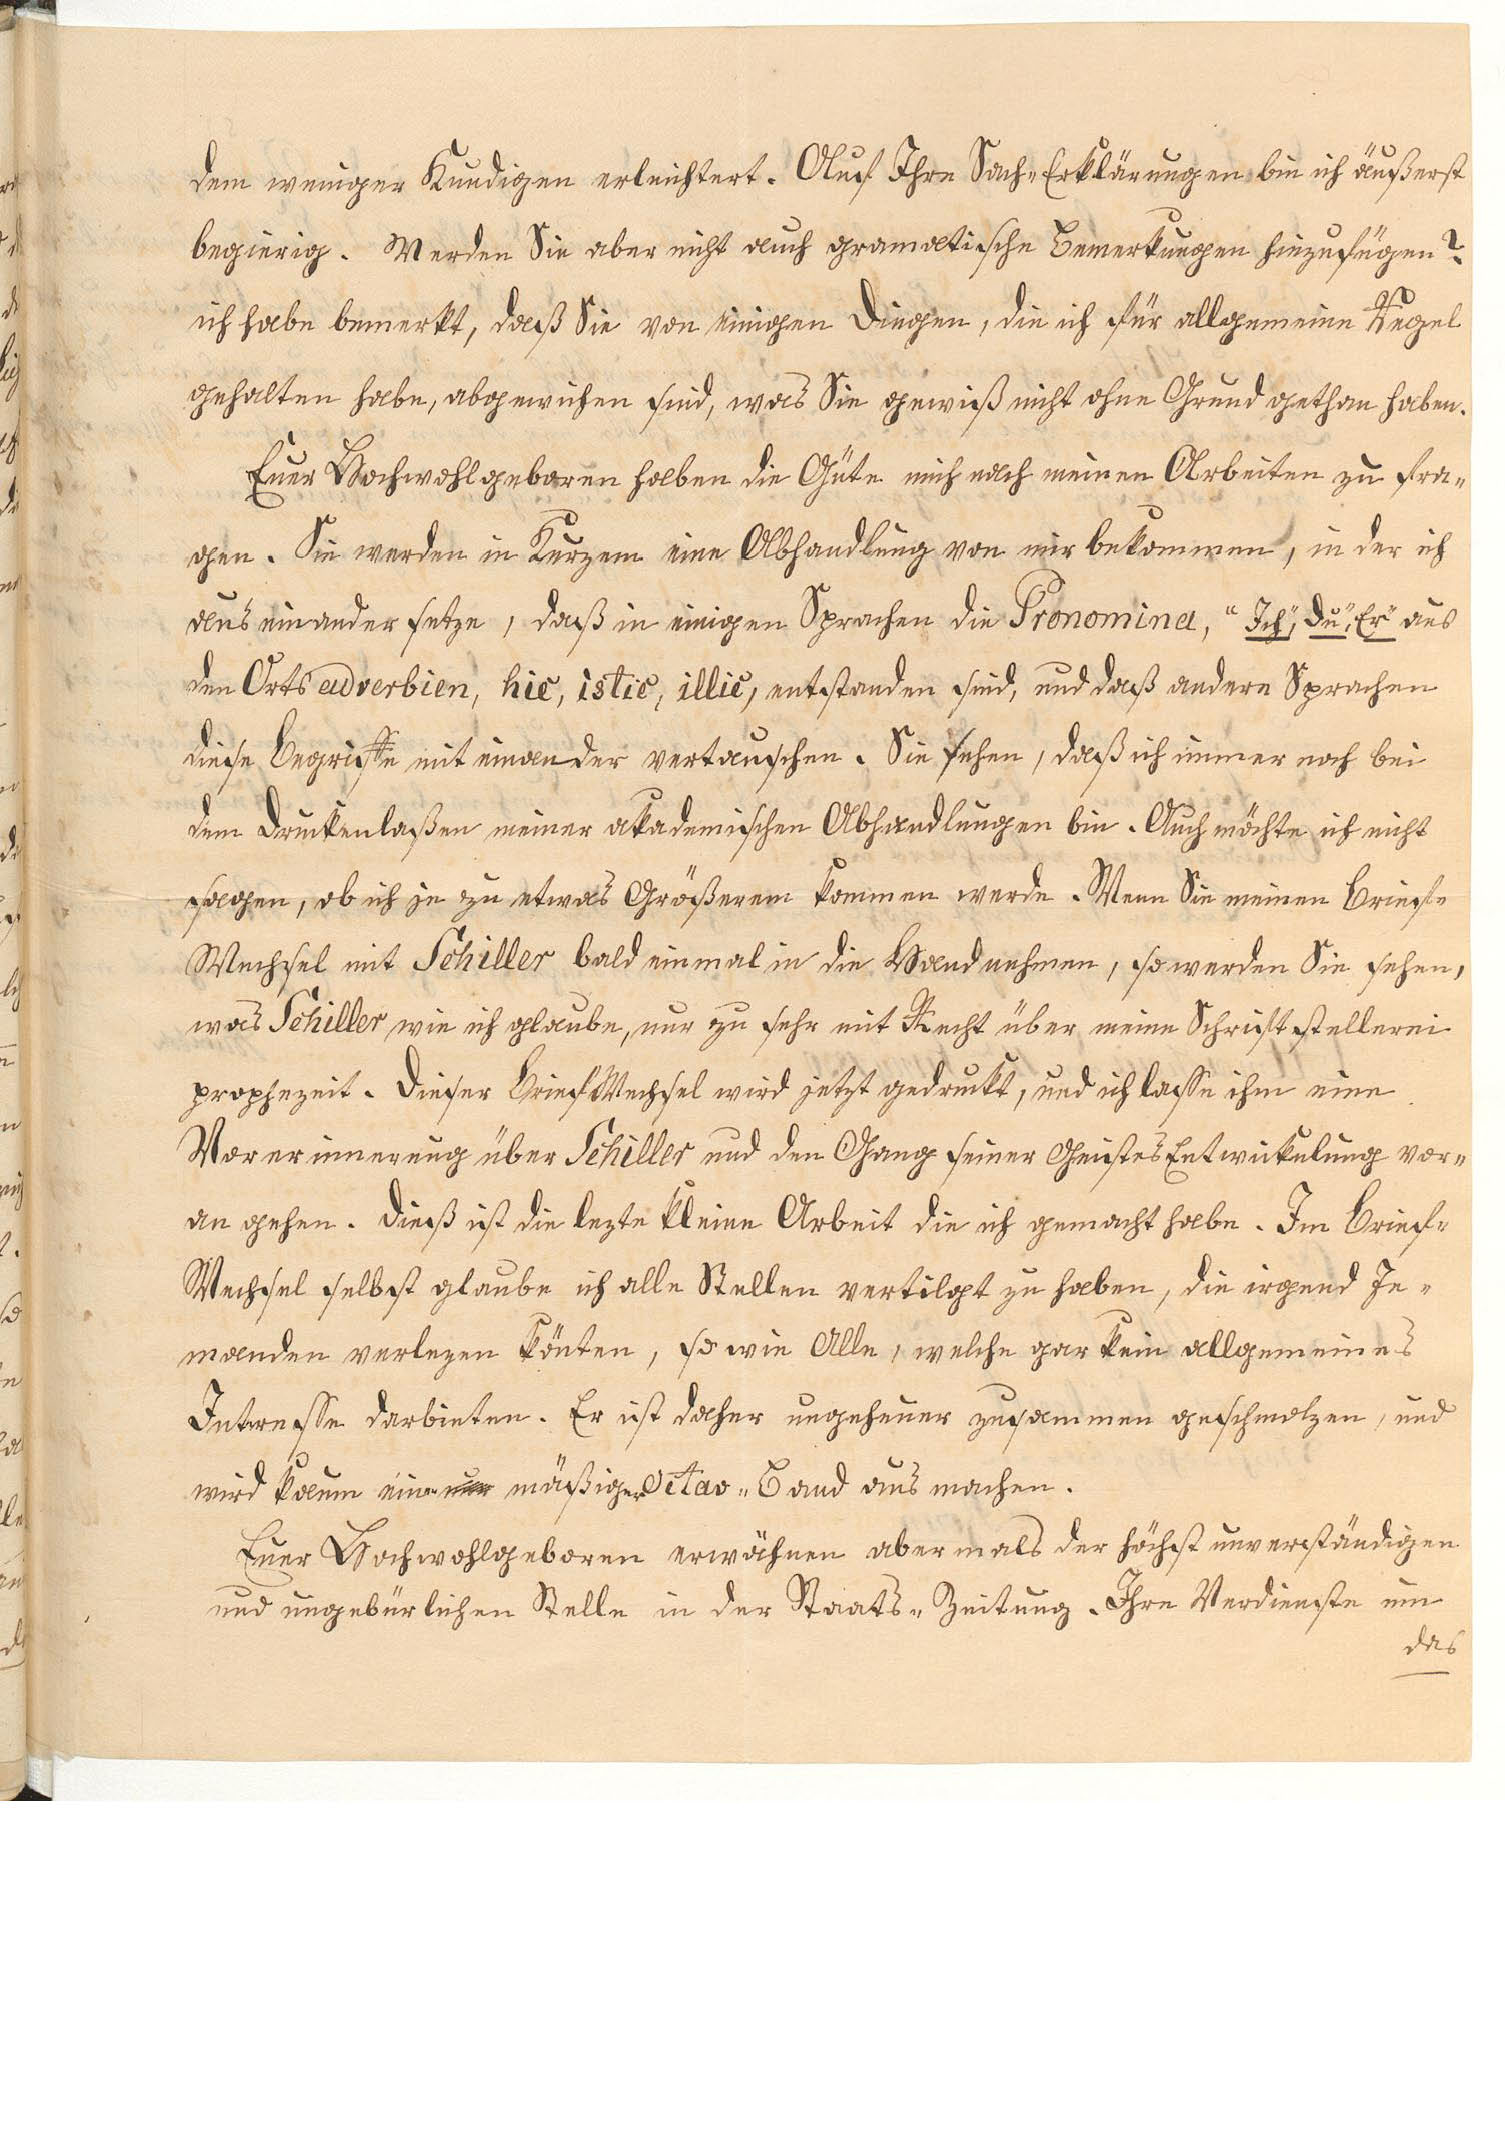 dem weniger Kundigen erleichtert. Auf Ihre Sach-Erklärungen bin ich äußerst
begierig. Werden Sie aber nicht auch gramatische Bemerkungen hinzufügen?
ich habe bemerkt, daß Sie von einigen Dingen, die ich für allgemeine Regel
gehalten habe, abgewichen sind, was Sie gewiß nicht ohne Grund gethan haben.
Euer Hochwohlgeboren haben die Güte mich nach meinen Arbeiten zu fra-
gen. Sie werden in Kurzem eine Abhandlung von mir bekommen, in der ich
aus einander setze, daß in einigen Sprachen die Pronomina, "Ich", "Du", "Er" aus
den Orts adverbien, hic, istic, illic, entstanden sind, und daß andere Sprachen
diese Begriffe mit einander vertauschen. Sie sehen, daß ich immer noch bei
dem Druckenlaßen meiner akademischen Abhandlungen bin. Auch möchte ich nicht
sagen, ob ich je zu etwas Größerem kommen werde. Wenn Sie meinen Brief-
Wechsel mit Schiller bald einmal in die Hand nehmen, so werden Sie sehen,
was Schiller wie ich glaube, nur zu sehr mit Recht über meine Schriftstellerei
prophezeit. Dieser BriefWechsel wird jetzt gedruckt, und ich lasse ihm eine
Vorerinnerung über Schiller und den Gang seiner GeistesEntwickelung vor-
an gehen. Dieß ist die lezte kleine Arbeit die ich gemacht habe. Im Brief-
Wechsel selbst glaube ich alle Stellen vertilgt zu haben, die irgend Je-
manden verlezen könten, so wie Alle, welche gar kein allgemeines
Interesse darbieten. Er ist daher ungeheuer zusammen geschmolzen, und
wird kaum ein nur mäßiger Octav-Band aus machen.
Euer Hochwohlgeboren erwähnen abermals der höchst unverständigen
und ungebürlichen Stelle in der Staats-Zeitung. Ihre Verdienste um
das